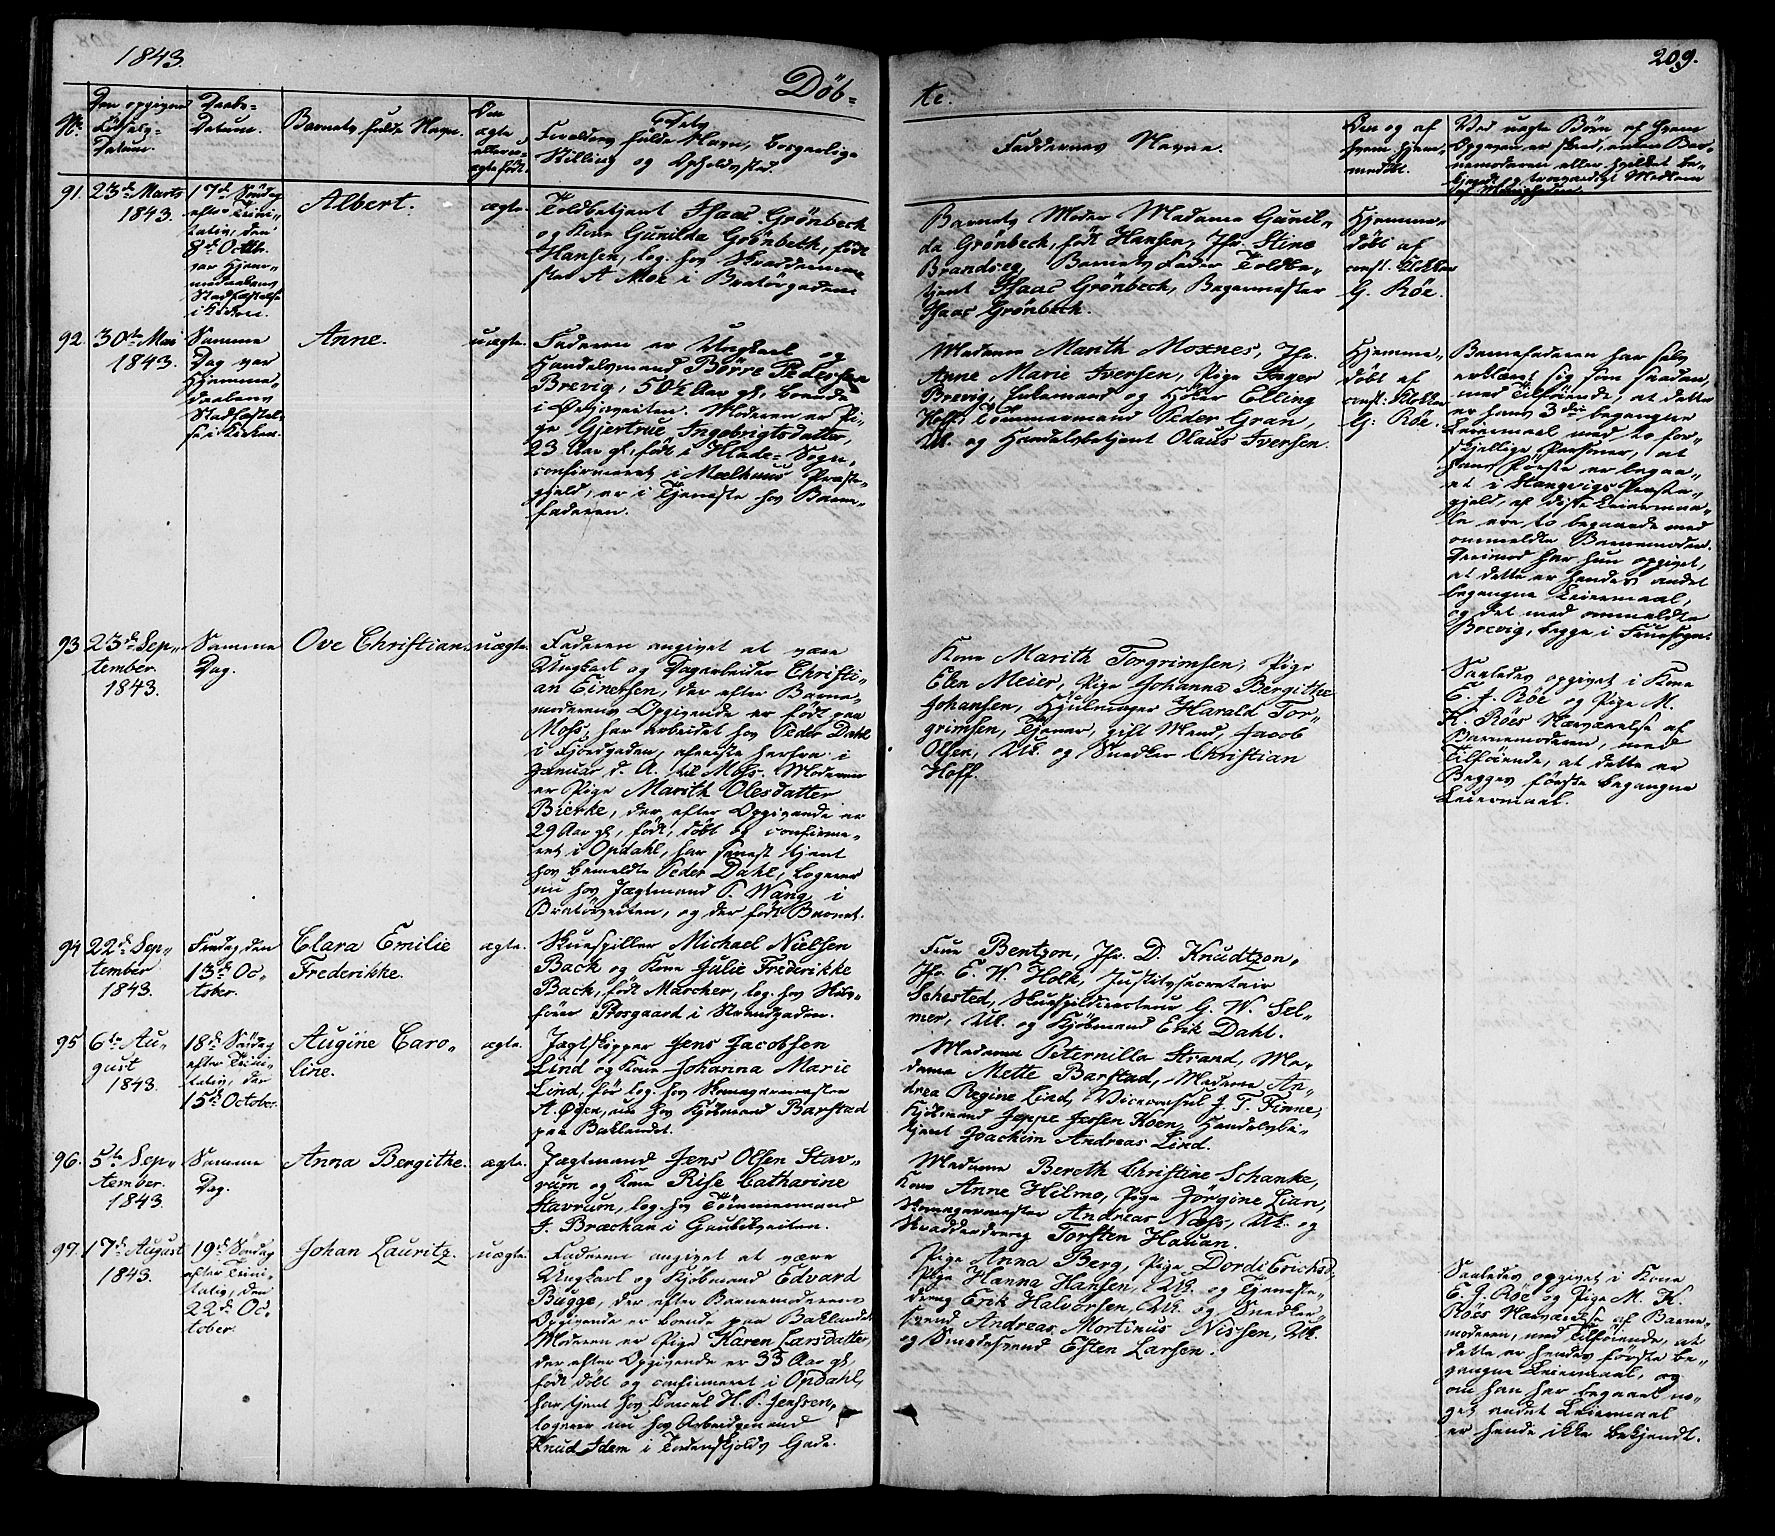 1843.
209.
Döb-
te.
No.
Den opgivne
Fødsels-
Datum.
Daabs-
Datum.
Barnets fulde Navn.
Om
ægte
eller u-
ægte født.
Forældres fulde Navn, borgerlige
Stilling og Opholdssted.
Faddernes Navne.
Om og af
hvem hjem-
medøbt.
Ved uægte Børn af hvem
Opgaven er skeet, enten Bar-
nemoderen eller hvilket be-
kjendt og troværdigt Medlem
af Menigheden.
91.
23de Marts
1843.
17de Søndag
efter Trini-
tatis, den
8de Octbr.
var Hjem-
medaabens
Stadfæstelse
i Kirken.
Albert.
ægte.
Toldbetjent Isaac Grønbech
og Kone Gunilda Grønbech, født
Hansen, log. hos Skræddermester
A. Moe i Bratørgaden.
Barnets Moder Madame Gunil-
da Grønbech, født Hansen, Jfr. Stine
Brandseg, Barnets Fader Toldbe-
tjent Isaac Grønbech, Bagermester
Isaac Grønbech.
Hjemme-
døbt af
const. Klokker
G. Röe.
92.
30te Mai
1843.
Samme
Dag var
Hjemme-
daabens
Stadfæstel-
se i Kirken.
Anne.
uægte.
Faderen er Ungkarl og
Handelsmand Börre Pedersen
Brevig, 50½ Aar gl., boende
i Ørjaveiten. Moderen er Pi-
ge Gjertrue Ingebrigtsdatter,
23 Aar gl., født i Hlade-Sogn,
confirmeret i Melhuus Præste-
gjeld, er i Tjeneste hos Barne-
faderen.
Madame Marith Moxnes, Jfr.
Anne Marie Iversen, Pige Inger
Brevig, Huusmand og Elling
Hoff, Tømmermand Peder Gran,
Uk. og Handelsbetjent Olaus Iversen.
Hjemme-
døbt af
const. Klokker
G. Röe.
Barnefaderen har selv
erklæret sig som saadan,
med Tilføiende, at dette
er hans 3die begangne
Leiermaal med to for-
skjellige Personer, at
hans Første er begaa-
et i Stangvigs Præste-
gjeld, af disse Leiermaa-
le ere to begaaede med
ommeldte Barnemoder.
Derimod har hun opgivet,
at dette er hendes andet
begangne Leiermaal,
og det med ommeldte
Brevig, begge i Fruesogn.
93.
23de Sep-
tember
1843.
Samme
Dag.
Ove Christian.
uægte.
Faderen angivet at være
Ungkarl og Dagarbeider Christi-
an Einetsen, der efter Barne-
moderens Opgivende er født paa
Moss, har arbeidet hos Peder Dahl
i Fjordgaden, afreiste herfra i
Januar d. A. til Moss. Moderen
er Pige Marith Olesdatter
Bierke, der efter Opgivende er
29 Aar gl., født, døbt og confirme-
ret i Opdahl, har senest tjent
hos bemeldte Peder Dahl, logerer
nu hos Jægtmand P. Wang i
Bratørveiten, og der født Barnet.
Kone Marith Torgrimsen, Pige
Elen Meier, Pige Johanna Bergithe
Johansen, Hjulmager Harald Tor-
grimsen, Tjener, gift Mand, Jacob
Olsen, Uk. og Snedker Christian
Hoff.
Saaledes opgivet i Kone
E. J. Röe og Pige M.
K. Röes Nærværelse af
Barnemoderen, med
Tilføiende, at dette er
Begges første begangne
Leiermaal.
94.
22de Sep-
tember
1843.
Fredag den
13de Oc-
tober.
Clara Emilie
Frederikke.
ægte.
Skuespiller Michael Nielsen
Bach og Kone Julie Frederikke
Bach, født Marcher, log. hos
Prosgaard i Strandgaden.
Frue Bentzon, Jfr. D. Knudtzon,
Jfr. E. W. Holk, Justitssecretair
Sehested, Skuespildirecteur G. W. Sel-
mer, Uk. og Kjöbmand Erik Dahl.
95.
6te Au-
gust
1843.
18de Søndag
efter Trini-
tatis, den
15de October.
Augine Caro-
line.
ægte.
Jægtskipper Jens Jacobsen
Lind og Kone Johanna Marie
Lind, før log. hos Skomagermester
A. Øien, nu hos Kjöbmand Barstad
paa Baklandet.
Madame Peternilla Strand, Ma-
dame Mette Barstad, Madame An-
drea Regine Lind, Viceconsul J. T. Finne,
Kjöbmand Jeppe Jessen Koen, Handelsbe-
tjent Joachim Andreas Lind.
96.
5te Sep-
tember
1843.
Samme
Dag.
Anna Bergithe.
ægte.
Jægtmand Jens Olsen Stav-
rum og Kone Rise Catharine
Stavrum, log. hos Tømmermand
J. Brækhan i Gaubækveiten.
Madame Bereth Christine Schanke,
Kone Anne Hilmo, Pige Jörgine Lian,
Skomagermester Andreas Næss, Uk. og
Skrædderdreng Torsten Hauan.
97.
17de August
1843.
19de Søndag
efter Trini-
tatis, den
22de Oc-
tober.
Johan Lauritz.
uægte.
Faderen angivet at være
Ungkarl og Kjöbmand Edvard
Bugge, der efter Barnemoderens
Opgivende er boende paa Baklandet.
Moderen er Pige Karen Larsdatter,
der efter Opgivende er 33 Aar gl.,
født, døbt og confirmeret i Opdahl,
har tjent hos Consul H. P. Jenssen,
logerer nu hos Arbeidsmand
Knud Idem i Tordenskjolds Gade.
Pige Anna Berg, Pige Dordi Erichsd.,
Pige Hanna Hansen, Uk. og Tjeneste-
dreng Erik Halvorsen, Uk. og Snedker-
svend Andreas Mortinus Nissen, Uk.
og Smedesvend Esten Larsen.
Saaledes opgivet i Kone
E. J. Röe og Pige M. K.
Röes Nærværelse af Barne-
moderen, med Tilføiende, at
dette er hendes første be-
gangne Leiermaal, og
om han har begaaet no-
get andet Leiermaal
er hende ikke bekjendt.